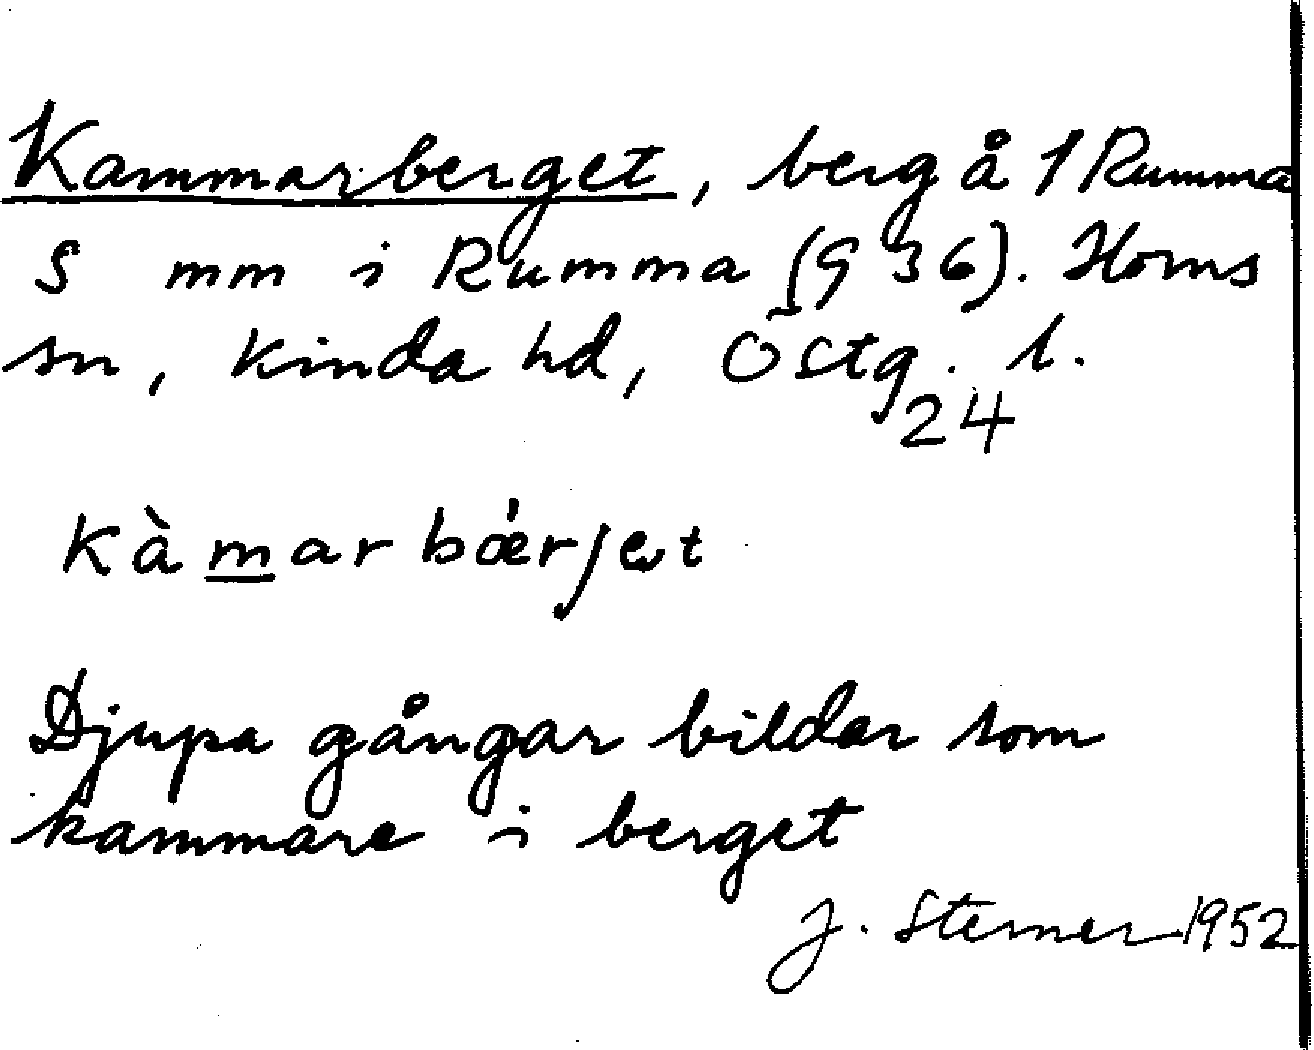 Kammarberget, berg å 1 Rumma
S mm i Rumma (G 36). Horns
sn, Kinda hd, Östg. l.
24
Kàmarbǽrjet
Djupa gångar bildar som
kammare i berget
J. Sterner 1952